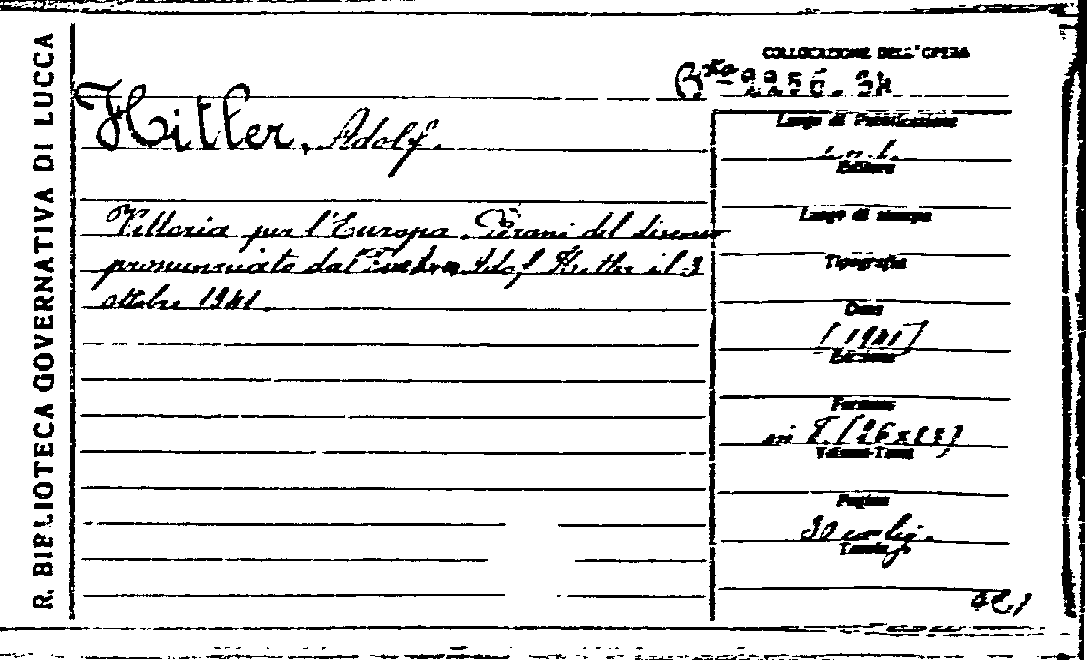 R. BIBLIOTECA GOVERNATIVA DI LUCCA
COLLOCAZIONE DELL'OPERA
Hitler, Adolf.
Vittoria per l'Europa. Brani del discorso
pronunciato dal Fuehrer Adolf Hitler il 3
ottobre 1941.
Luogo di Pubblicazione
s. n. t.
Editore
Luogo di stampa
Tipografia
Data
[1941]
Edizione
Formato
Volumi-Tomi
Pagine
30
Tavole